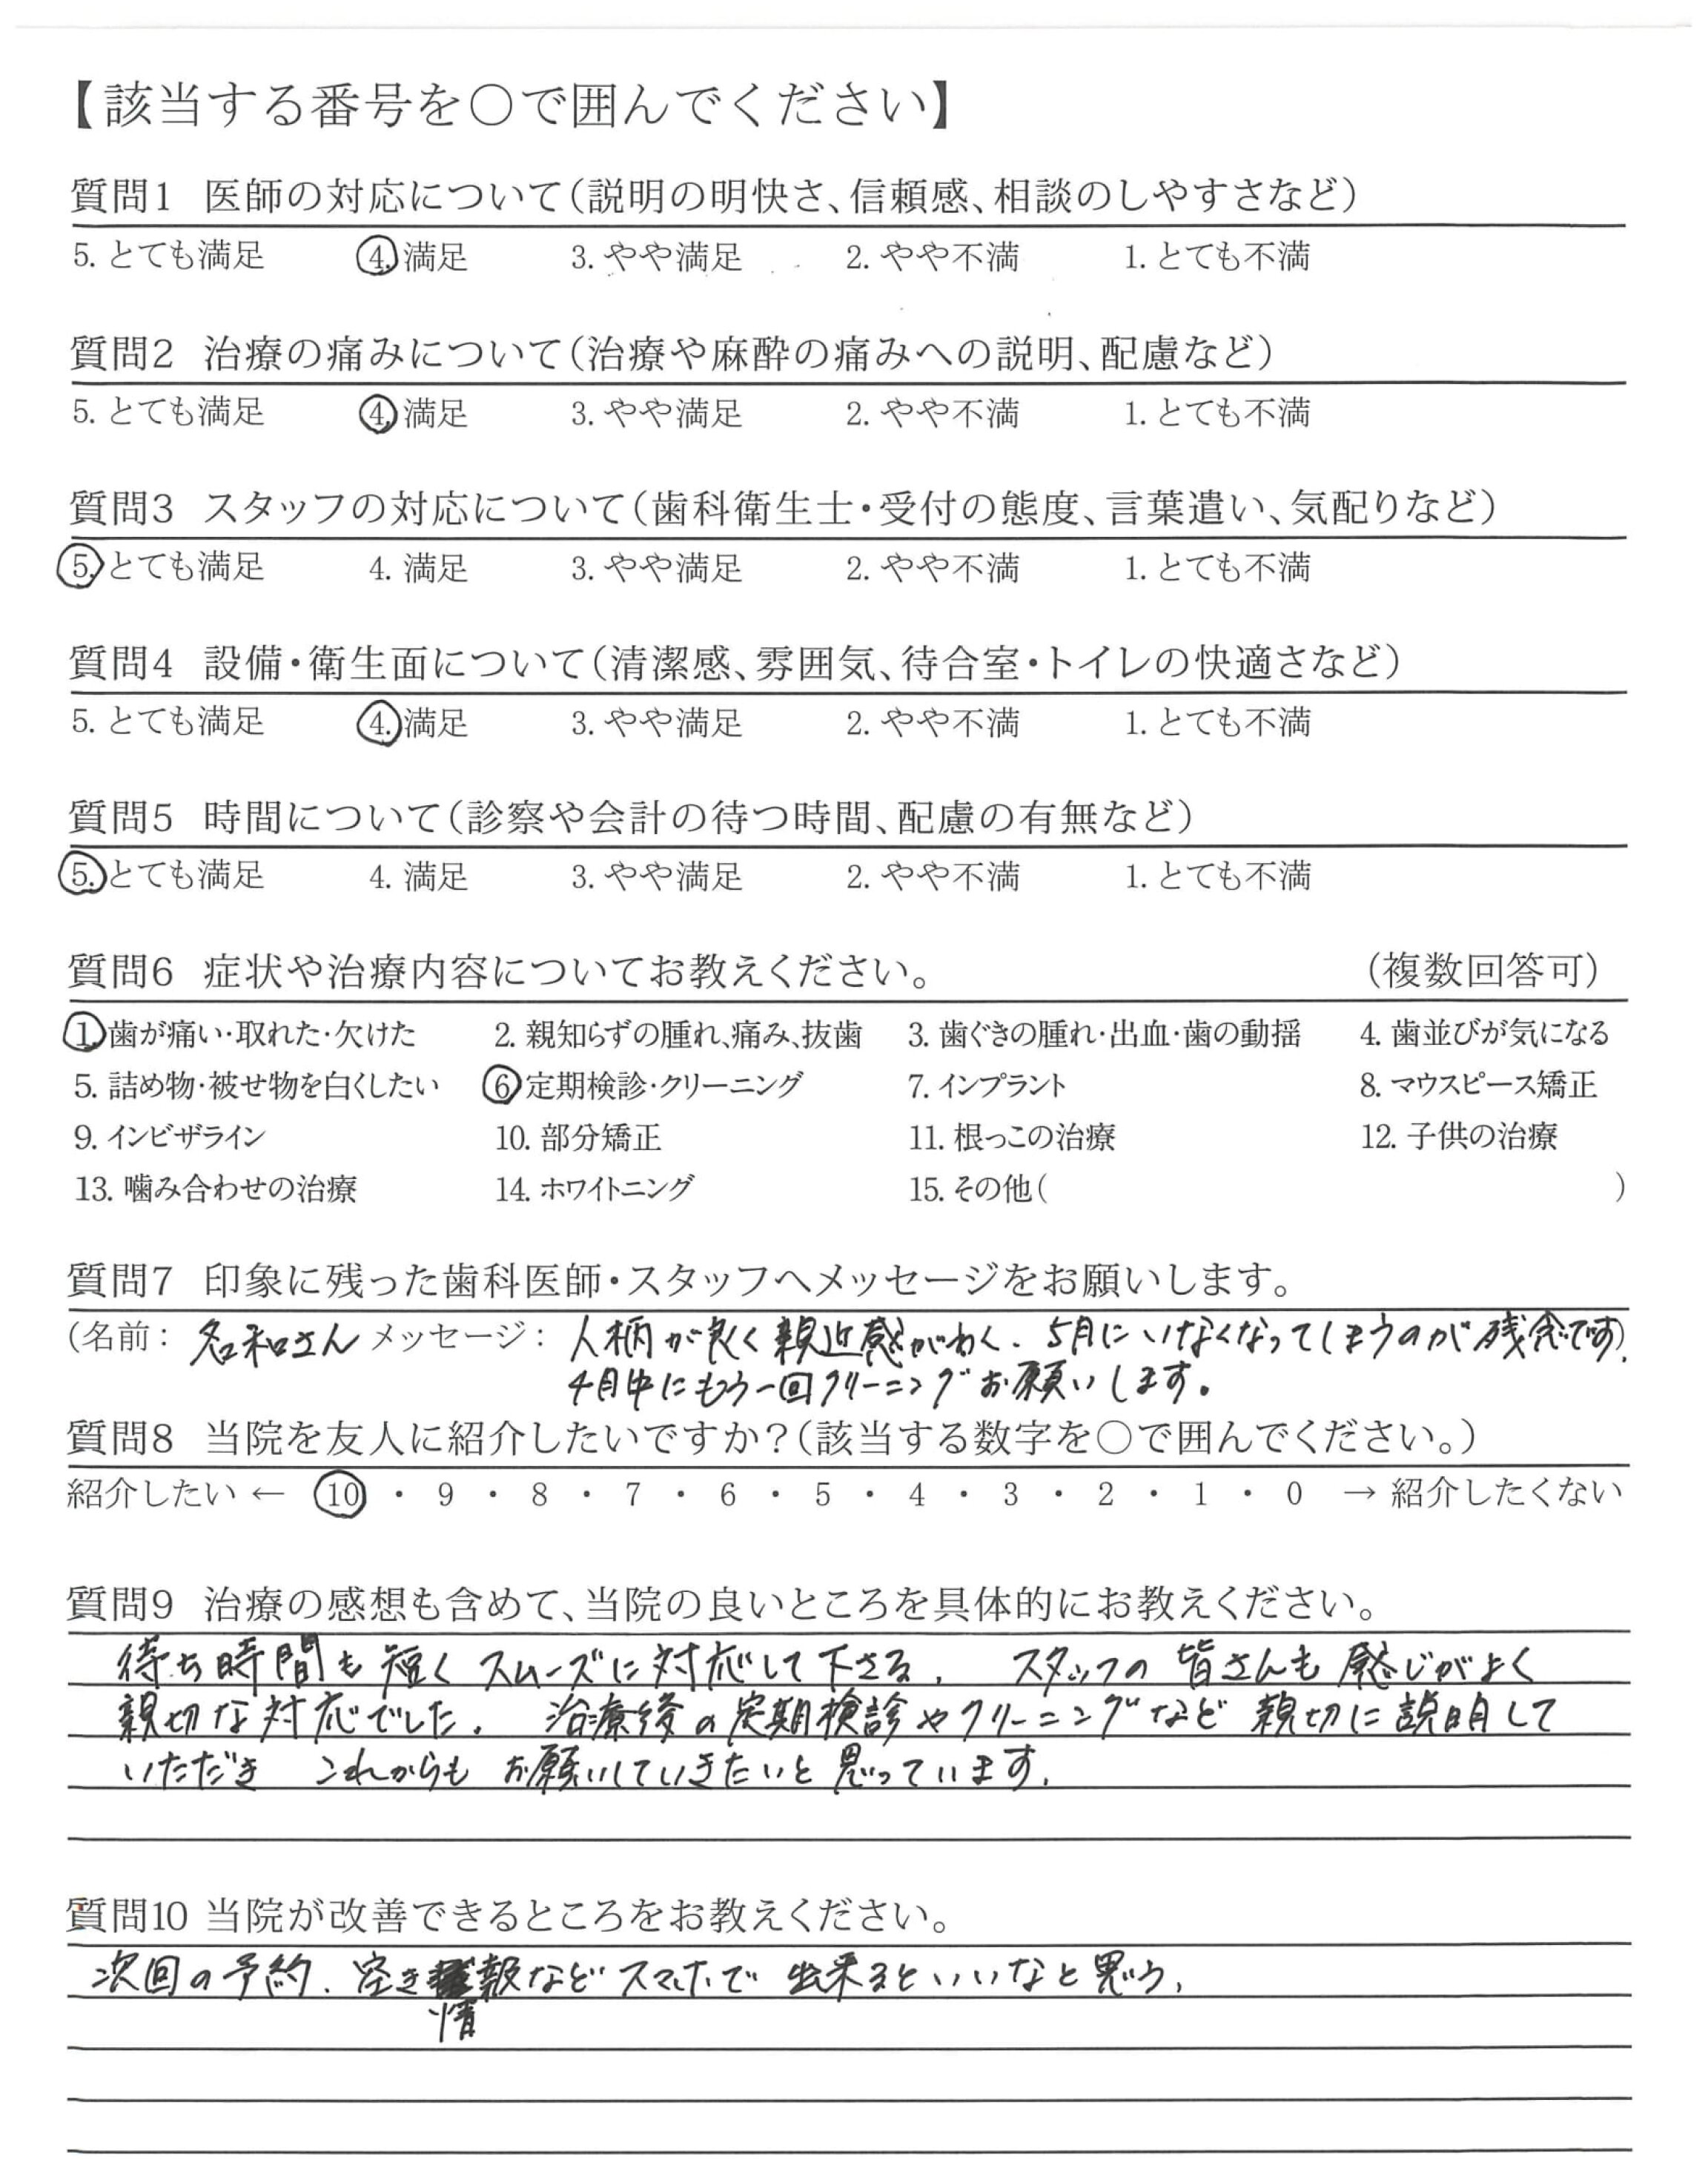 【該当する番号を○で囲んでください】
質問1 医師の対応について(説明の明快さ、信頼感、相談のしやすさなど)
5. とても満足 4. 満足 3. やや満足 2. やや不満 1. とても不満
質問2 治療の痛みについて(治療や麻酔の痛みへの説明、配慮など)
5. とても満足 4. 満足 3. やや満足 2. やや不満 1. とても不満
質問3 スタッフの対応について(歯科衛生士・受付の態度、言葉遣い、気配りなど)
5. とても満足 4. 満足 3. やや満足 2. やや不満 1. とても不満
質問4 設備・衛生面について(清潔感、雰囲気、待合室・トイレの快適さなど)
5. とても満足 4. 満足 3. やや満足 2. やや不満 1. とても不満
質問5 時間について(診察や会計の待つ時間、配慮の有無など)
5. とても満足 4. 満足 3. やや満足 2. やや不満 1. とても不満
質問6 症状や治療内容についてお教えください。 (複数回答可)
1. 歯が痛い・取れた・欠けた 2. 親知らずの腫れ、痛み、抜歯 3. 歯ぐきの腫れ・出血・歯の動揺 4. 歯並びが気になる
5. 詰め物・被せ物を白くしたい 6 定期検診・クリーニング 7. インプラント 8. マウスピース矯正
9. インビザライン 10. 部分矯正 11. 根っこの治療 12. 子供の治療
13. 噛み合わせの治療 14. ホワイトニング 15. その他( )
質問7 印象に残った歯科医師・スタッフへメッセージをお願いします。
(名前: 名和さん メッセージ: 人柄が良く親近感がわく、5月にいなくなってしまうのが残念です)
4月中にもう一回クリーニングお願いします。
質問8 当院を友人に紹介したいですか?(該当する数字を○で囲んでください。)
紹介したい ← 10 ・ 9 ・ 8 ・ 7 ・ 6 ・ 5 ・ 4 ・ 3 ・ 2 ・ 1 ・ 0 → 紹介したくない
質問9 治療の感想も含めて、当院の良いところを具体的にお教えください。
待ち時間も短くスムーズに対応して下さる。 スタッフの皆さんも感じがよく
親切な対応でした。 治療後の定期検診やクリーニングなど親切に説明して
いただき これからもお願いしていきたいと思っています。
質問10 当院が改善できるところをお教えください。
次回の予約、空き情報などスマホで出来るといいなと思う。